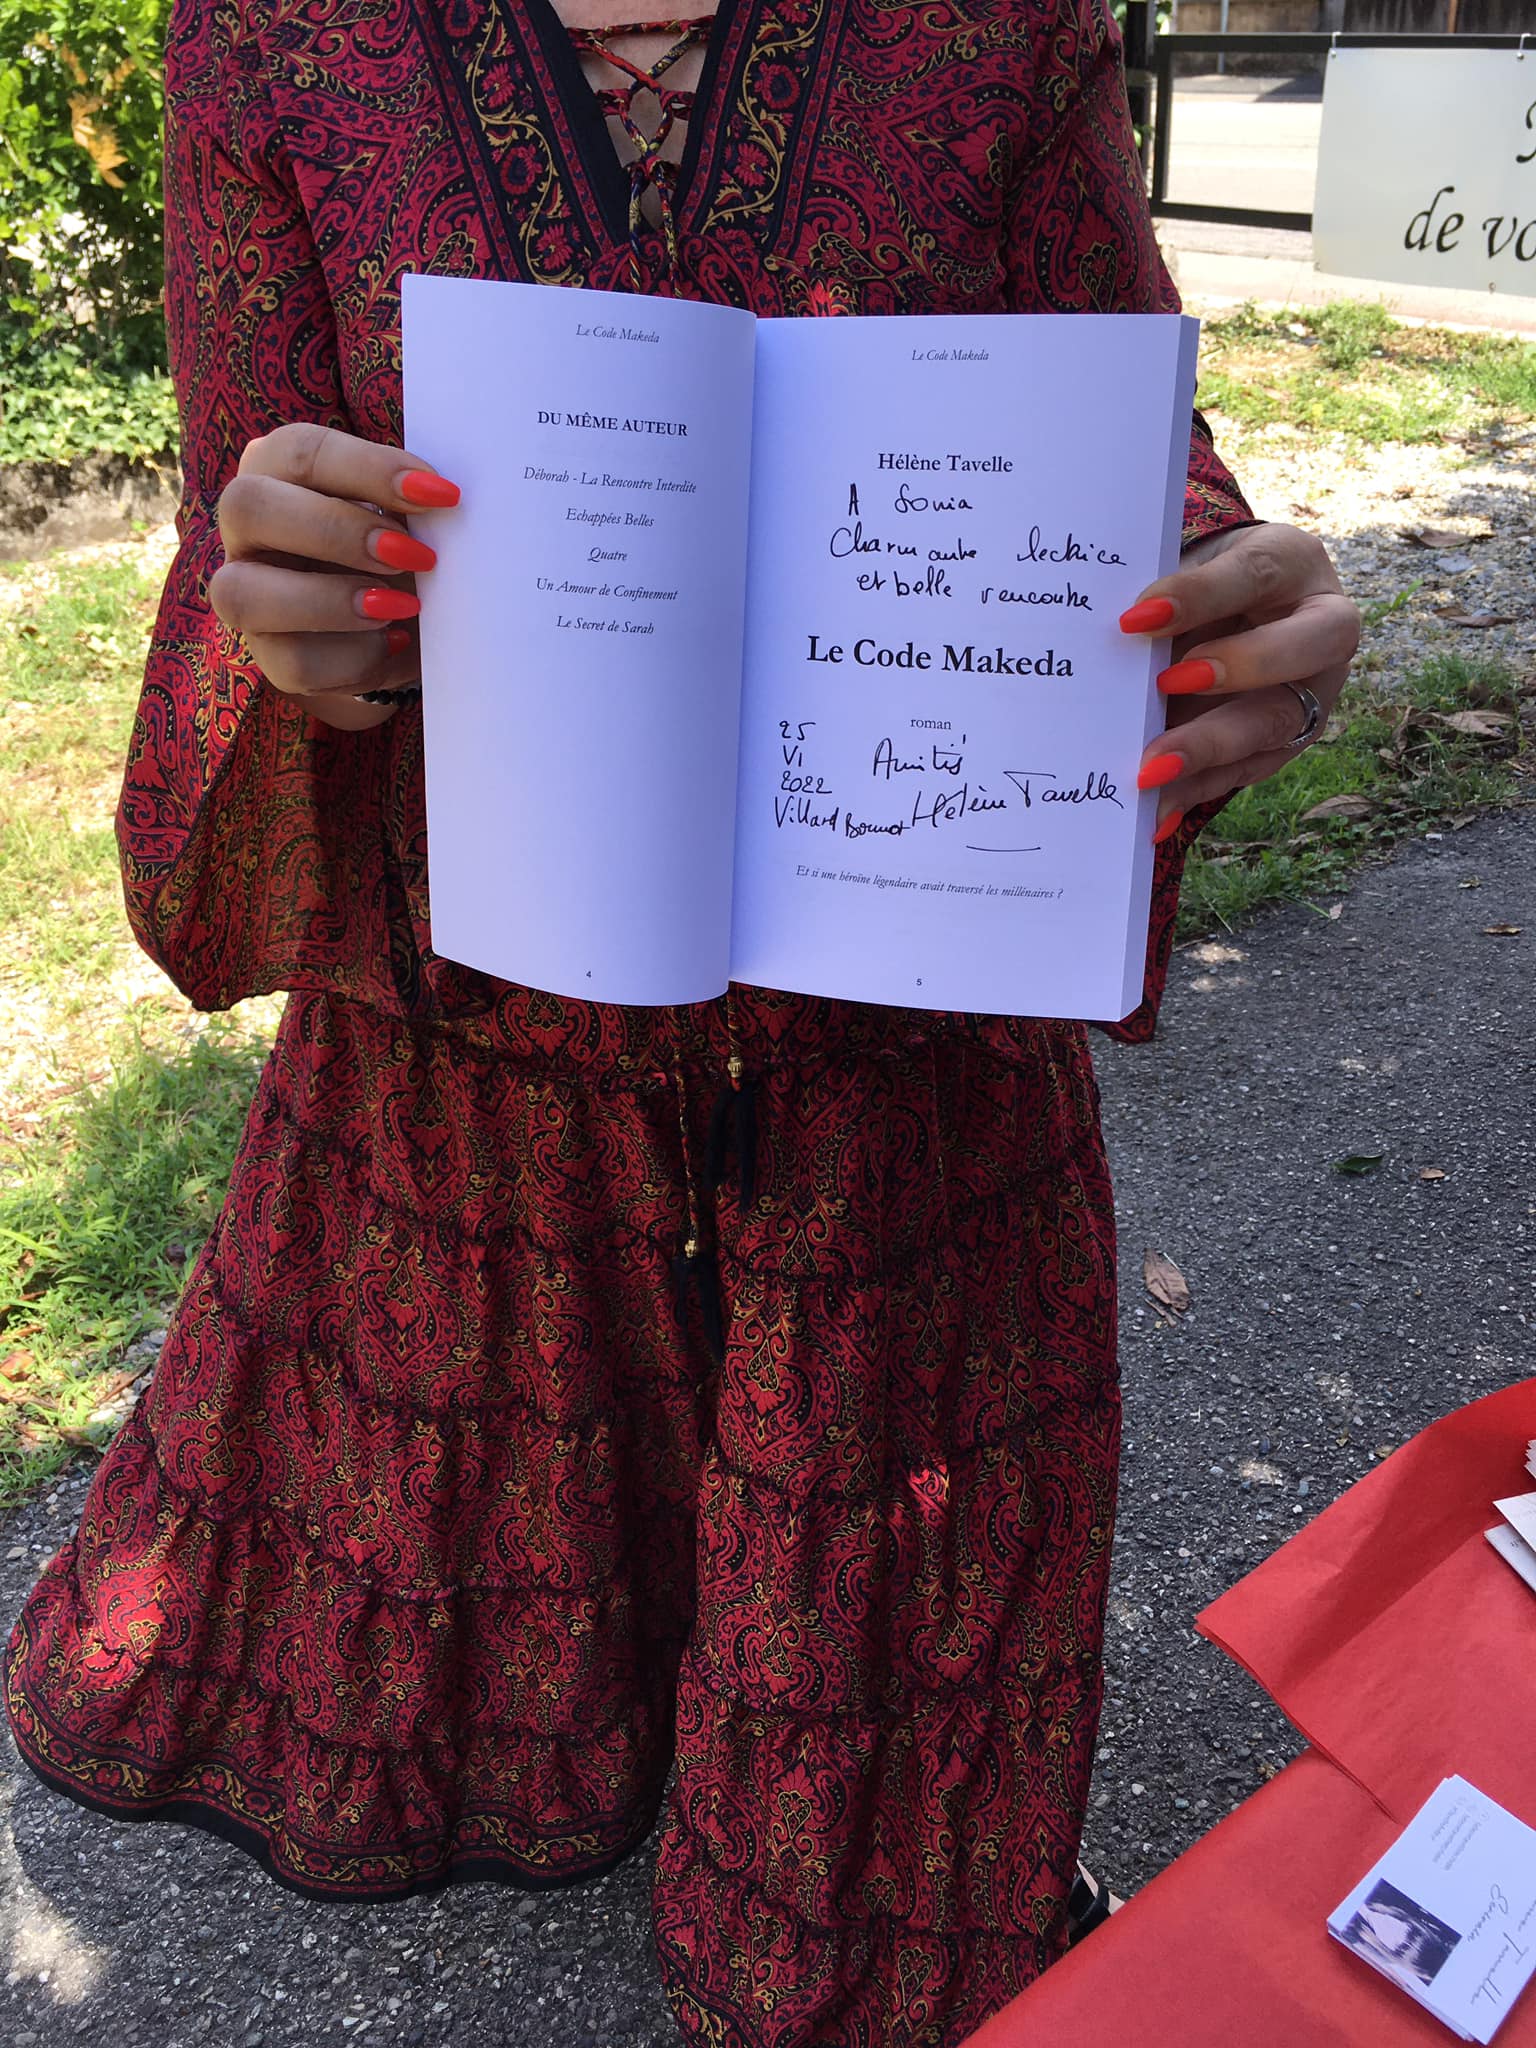 de vo
Le Code Makeda
DU MÊME AUTEUR
Déborah - La Rencontre Interdite
Echappées Belles
Quatre
Un Amour de Confinement
Le Secret de Sarah
4
Le Code Makeda
Hélène Tavelle
A Sonia
Charmante lectrice
et belle rencontre
Le Code Makeda
roman
25
VI
2022
Villard Bonnot
Amitiés
Hélène Tavelle
Et si une héroïne légendaire avait traversé les millénaires ?
5
Tavelle
Ecrivain